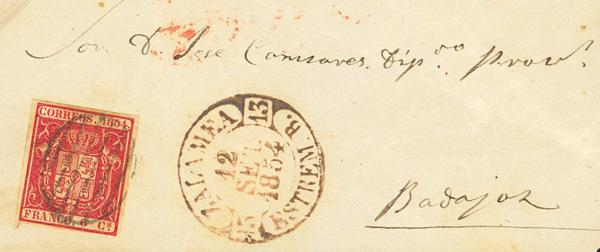 Sor. D. Jose Camisares. Dip.do Provl.
CORREOS. 1854.
FRANCO. 6 Cs.
ZALAMEA 13
12
SET
1854
ESTREM B.
Badajoz